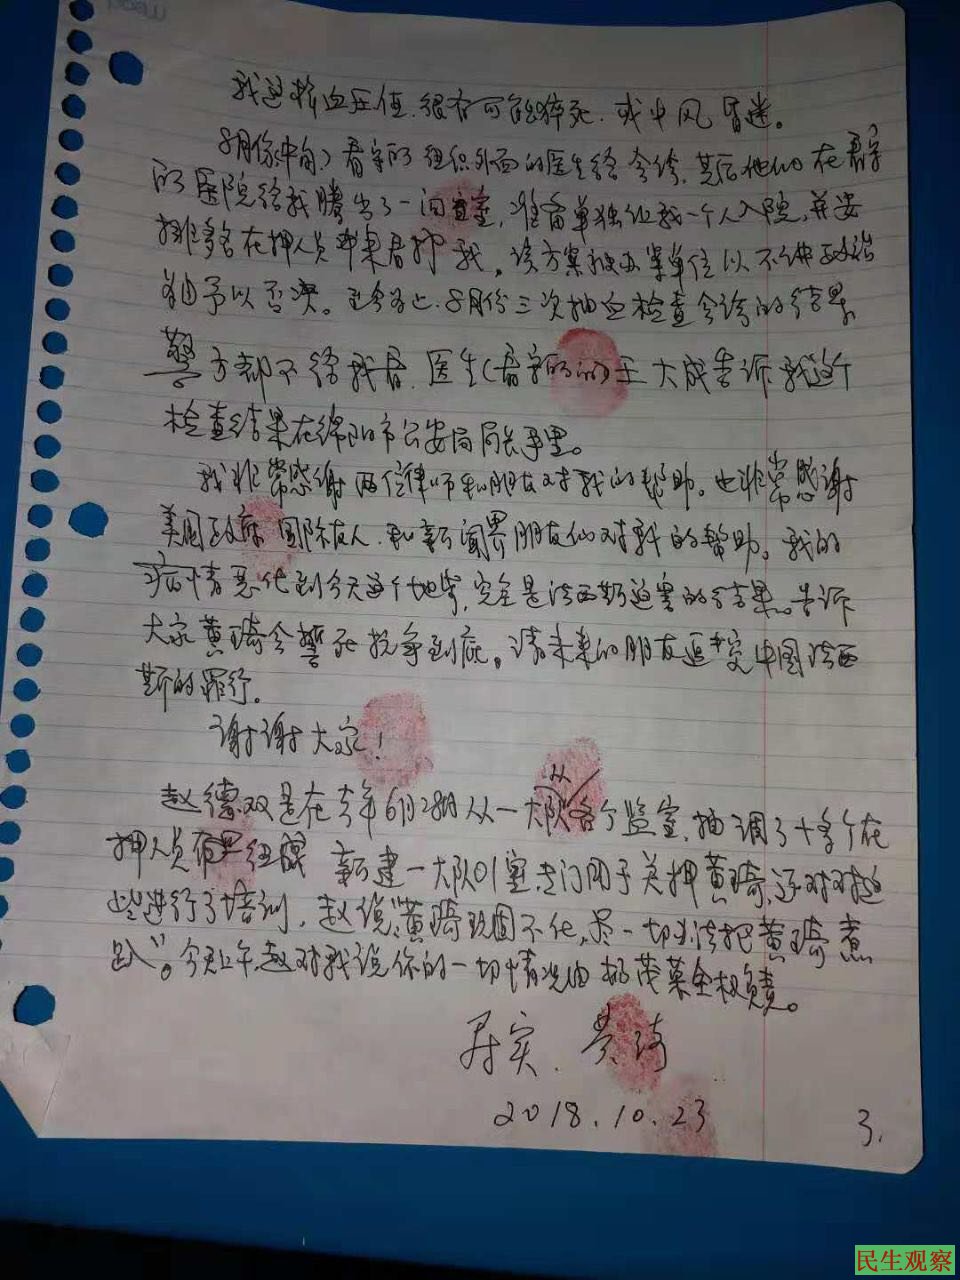 我这样血压值.很有可能猝死.或中风昏迷。
8月份(中旬)看守所组织外面的医生给会诊.其后他们在看守
的医院给我腾出了一间监室,准备单独让我一个人入院,并安
排多名在押人员来看护我。该方案被办案单位以不讲政治
为由予以否决。至今为止.8月份三次抽血检查会诊的结果
警方都不给我看.医生(看守所的)王大成告诉我这个
检查结果在绵阳市公安局局长手里。
我非常感谢两位律师和朋友对我的帮助。也非常感谢
美国政府.国际友人.和新闻界朋友们对我的帮助。我的
病情恶化到今天这个地步,完全是法西斯迫害的结果。告诉
大家黄琦会誓死抗争到底。请未来的朋友追究中国法西
斯的罪行。
谢谢大家!
赵德双是在去年6月28日从一大队各个监室,抽调了十多个在
押人员 新建一大队01室,专门用于关押黄琦,还对
进行了培训,赵说"黄琦顽固不化,尽一切办法把黄琦煮
趴"。今天上午,赵对我说你的一切情况由 全权负责。
属实.黄琦
2018.10.23
3.
民生观察